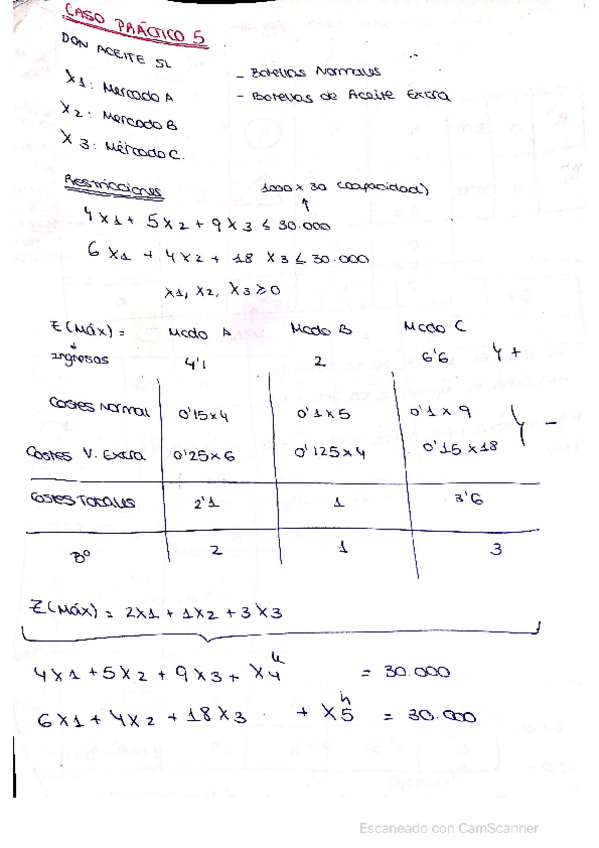 CASO PRÁCTICO 5
DON ACEITE SL
X1: Mercado A
X2: Mercado B
X3: Mercado C.
- Botellas Normales
- Botellas de Aceite Extra
Restricciones
1000 x 30 (capacidad)
↑
4x1 + 5x2 + 9x3 ≤ 30.000
6x1 + 4x2 + 18x3 ≤ 30.000
x1, x2, x3 ≥ 0
Z (Máx) = Mcdo A Mcdo B Mcdo C
↓
Ingresos 4'1 2 6'6 +
Costes Normal 0'15x4 0'1x5 0'1x9
Costes V. Extra 0'25x6 0'125x4 0'15x18 -
Costes Totales 2'1 1 3'6
Bº 2 1 3
Z (Máx) = 2x1 + 1x2 + 3x3
4x1 + 5x2 + 9x3 + x4 = 30.000
6x1 + 4x2 + 18x3 + x5 = 30.000
Escaneado con CamScanner